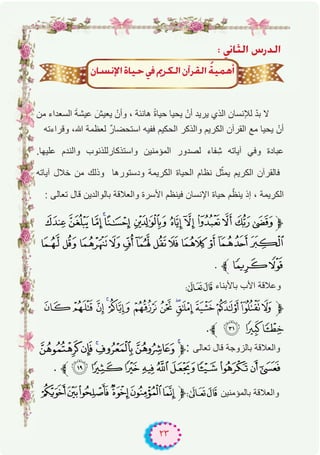 الدرس الثاني :
أهميةُ القرآن الكريم في حياة الإنسان
لا بدّ للإنسان الذي يريد أنْ يحيا حياةً هانئة ، وأنْ يعيشَ عيشةَ السعداء من
أنْ يحيا مع القرآن الكريم والذكر الحكيم ففيه استحضارٌ لعظمة الله، وقراءته
عبادة وفي آياته شِفاء لصدور المؤمنين واستذكارللذنوب والندم عليها.
فالقرآن الكريم يمثّل نظام الحياة الكريمة ودستورها وذلك من خلال آياته
الكريمة ، إذ ينظّم حياة الإنسان فينظم الأسرة والعلاقة بالوالدين قال تعالى :
﴿ وَقَضَىٰ رَبُّكَ أَلَّا تَعْبُدُوٓا۟ إِلَّآ إِيَّاهُ وَبِٱلْوَٰلِدَيْنِ إِحْسَٰنًا إِمَّا يَبْلُغَنَّ عِندَكَ
ٱلْكِبَرَ أَحَدُهُمَآ أَوْ كِلَاهُمَا فَلَا تَقُل لَّهُمَآ أُفٍّ وَلَا تَنْهَرْهُمَا وَقُل لَّهُمَا
قَوْلًا كَرِيمًا ﴾ .
وعلاقة الأب بالأبناء قَالَ تَعَالَىٰ:
﴿ وَلَا تَقْتُلُوٓا۟ أَوْلَٰدَكُمْ خَشْيَةَ إِمْلَٰقٍ نَّحْنُ نَرْزُقُهُمْ وَإِيَّاكُمْ إِنَّ قَتْلَهُمْ كَانَ
خِطْـًٔا كَبِيرًا ٣١ ﴾.
والعلاقة بالزوجة قال تعالى :﴿ وَعَاشِرُوهُنَّ بِٱلْمَعْرُوفِ فَإِن كَرِهْتُمُوهُنَّ
فَعَسَىٰٓ أَن تَكْرَهُوا۟ شَيْـًٔا وَيَجْعَلَ ٱللَّهُ فِيهِ خَيْرًا كَثِيرًا ١٩ ﴾ .
والعلاقة بالمؤمنين قَالَ تَعَالَىٰ:﴿ إِنَّمَا ٱلْمُؤْمِنُونَ إِخْوَةٌ فَأَصْلِحُوا۟ بَيْنَ أَخَوَيْكُمْ
٢٣